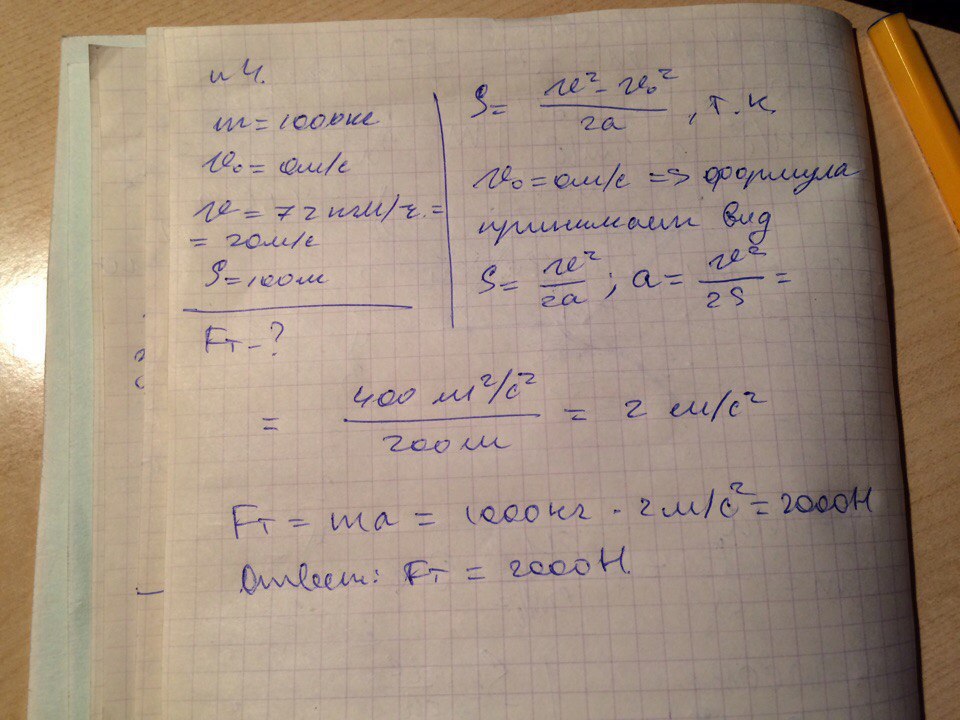 n 4.
m = 1000кг
v₀ = 0м/с
v = 72 км/ч. =
= 20м/с
S = 100м
Fт - ?
S = (v² - v₀²)/2a , т.к.
v₀ = 0м/с => формула
принимает вид
S = v²/2a ; a = v²/2S =
= 400 м²/с² / 200м = 2 м/с²
Fт = ma = 1000кг · 2м/с² = 2000Н
Ответ: Fт = 2000Н.